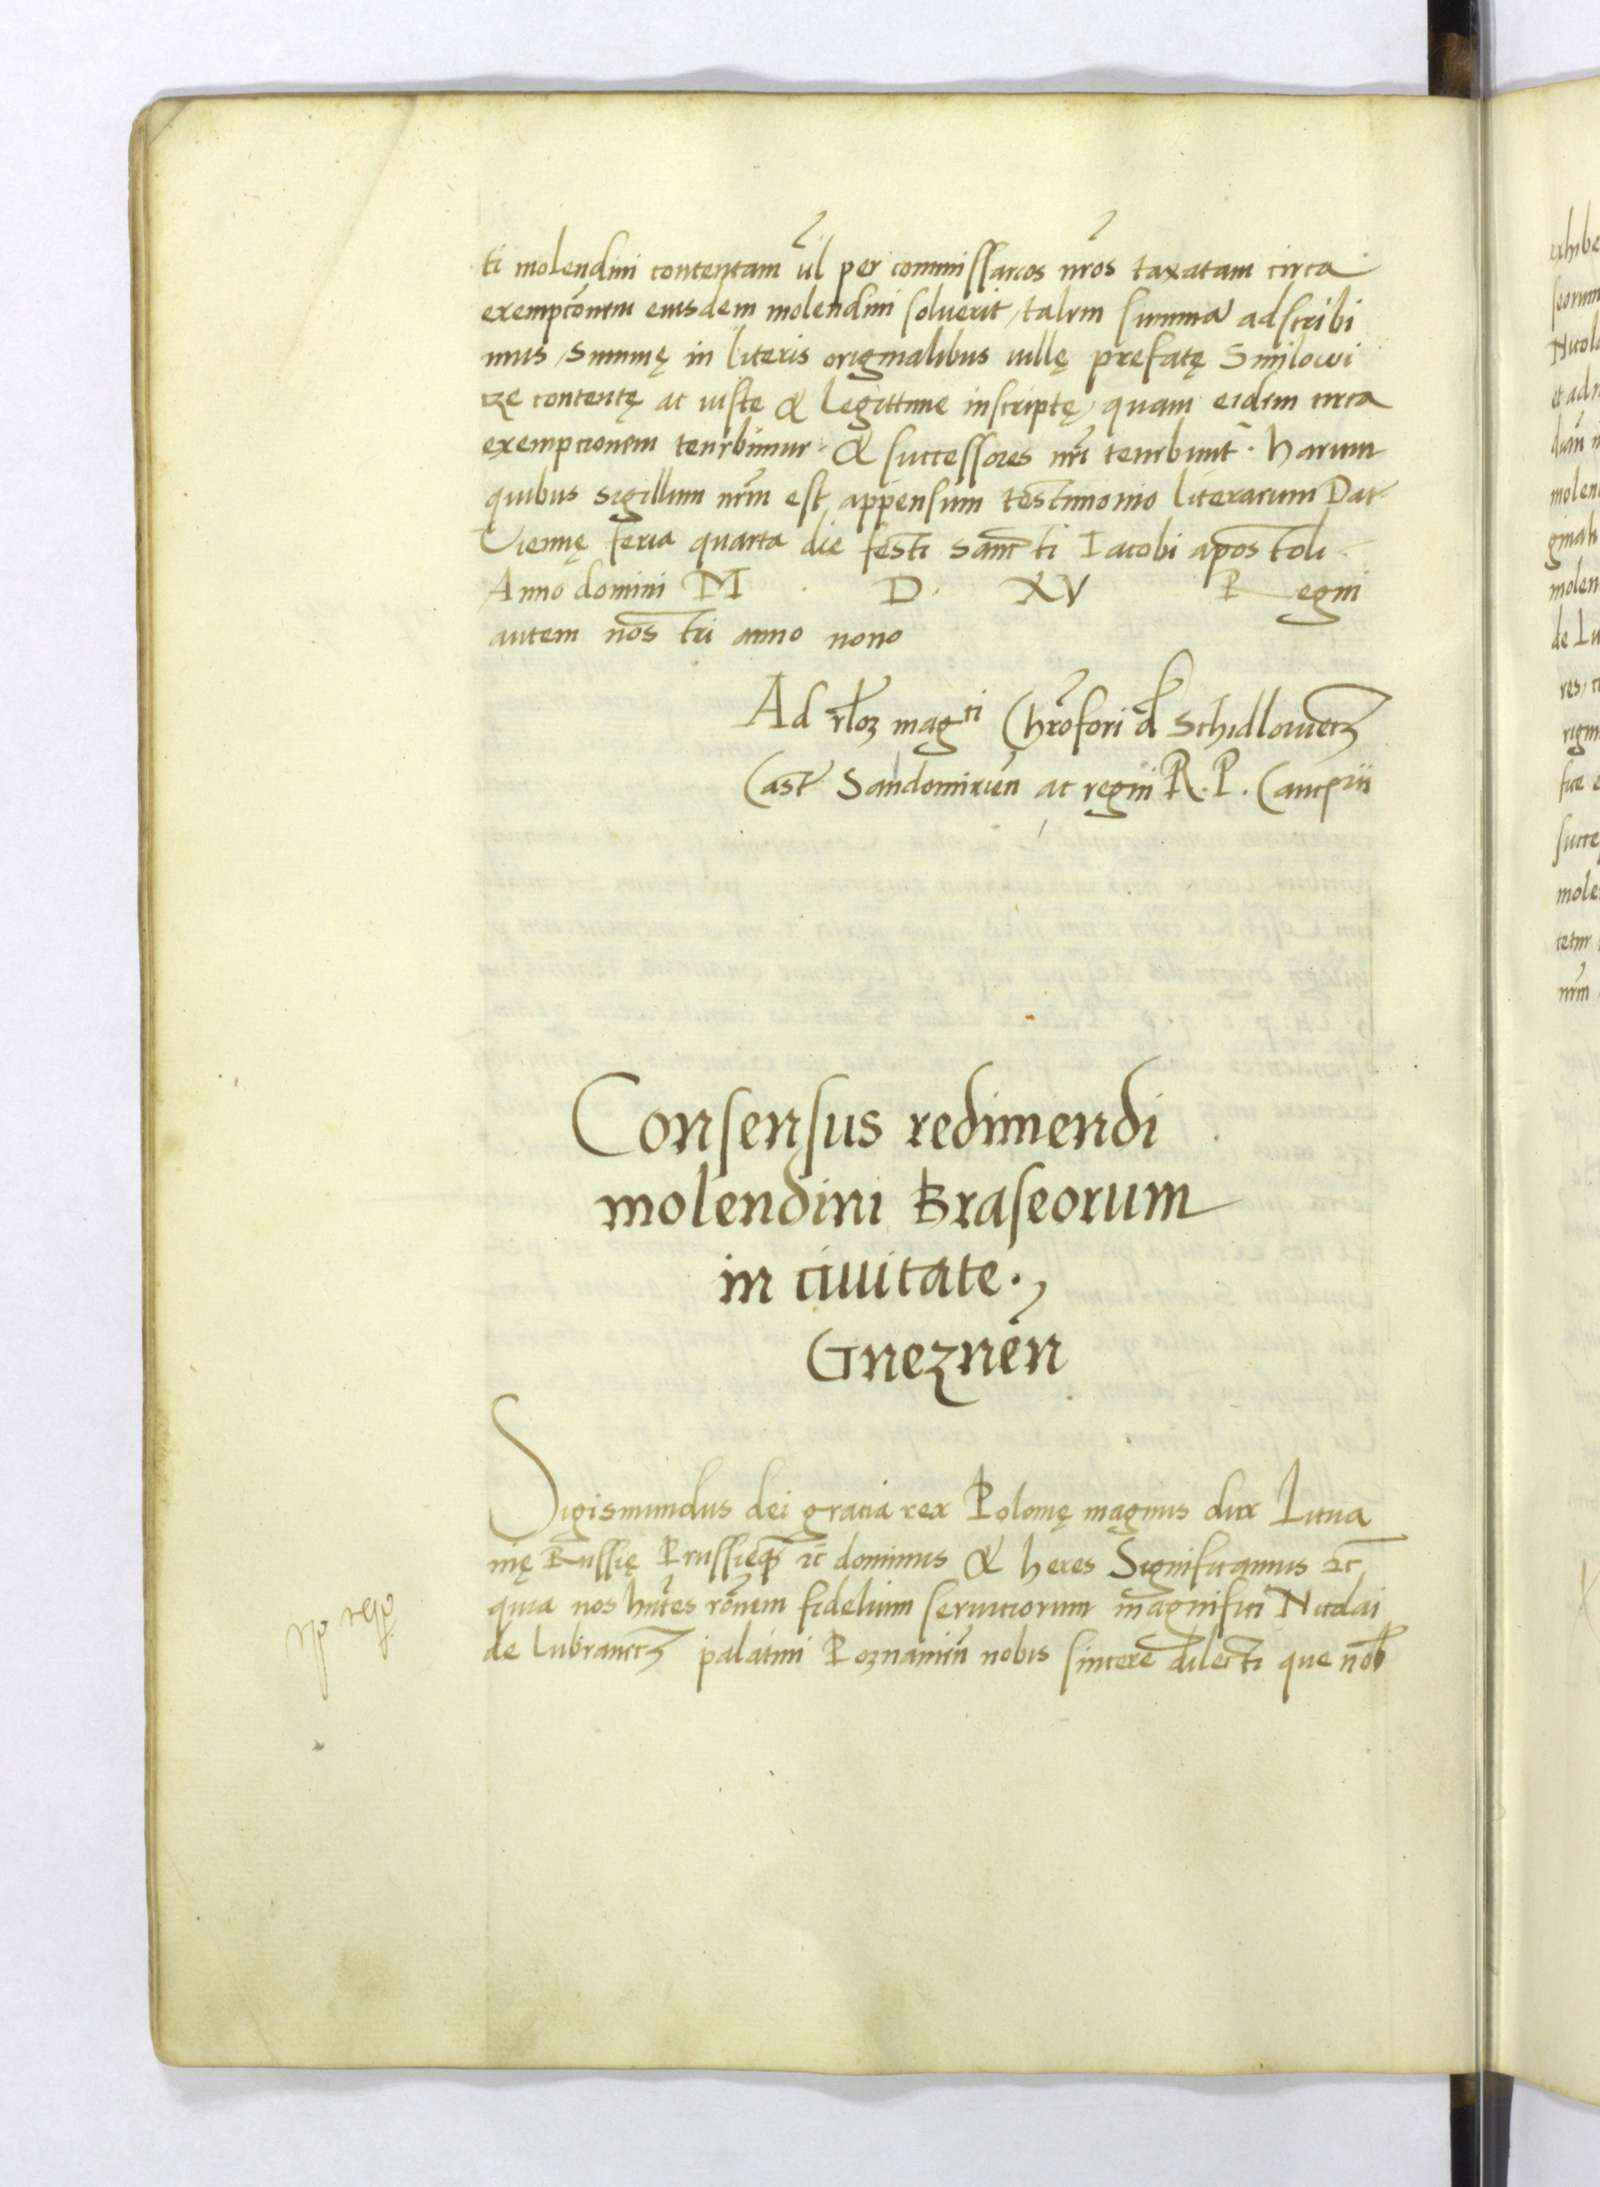 ti molendini contentam vl̃ per commissarios nr̃os taxatam circa
exempcõnem eiusdem molendini soluerit, talem summa adscribi
mus, Summę in literis originalibus uillę prefatę Smilowi
cze contentę ac iuste & legittime inscriptę, quam eidem circa
exempcionem tenebimur & successores nr̃i tenebunt̃. harum
quibus sigillum nrm̃ est appensum testimonio literarum Dat
Viennę feria quarta die festi sancti Iacobi apostoli
Anno domini M . D . XV Regni
autem nostri anno nono
Ad rl̃oꝫ magci Chrõfori de Schidlowecz
Cast Sandomirien̄ ac regni R. P. Cancrii
Consensus redimendi
molendini Braseorum
in ciuitate.,
Gneznen̄
Sigismundus dei gracia rex Polonię magnus dux Litua
nię Russię Prussieqꝫ ꝛc̄ dominus & heres Significamus ꝛc̄
quia nos hñtes rõnem fidelium seruiciorum magnifici Nicolai
de lubrancz palatini Poznanien̄ nobis sincere dilecti que nob